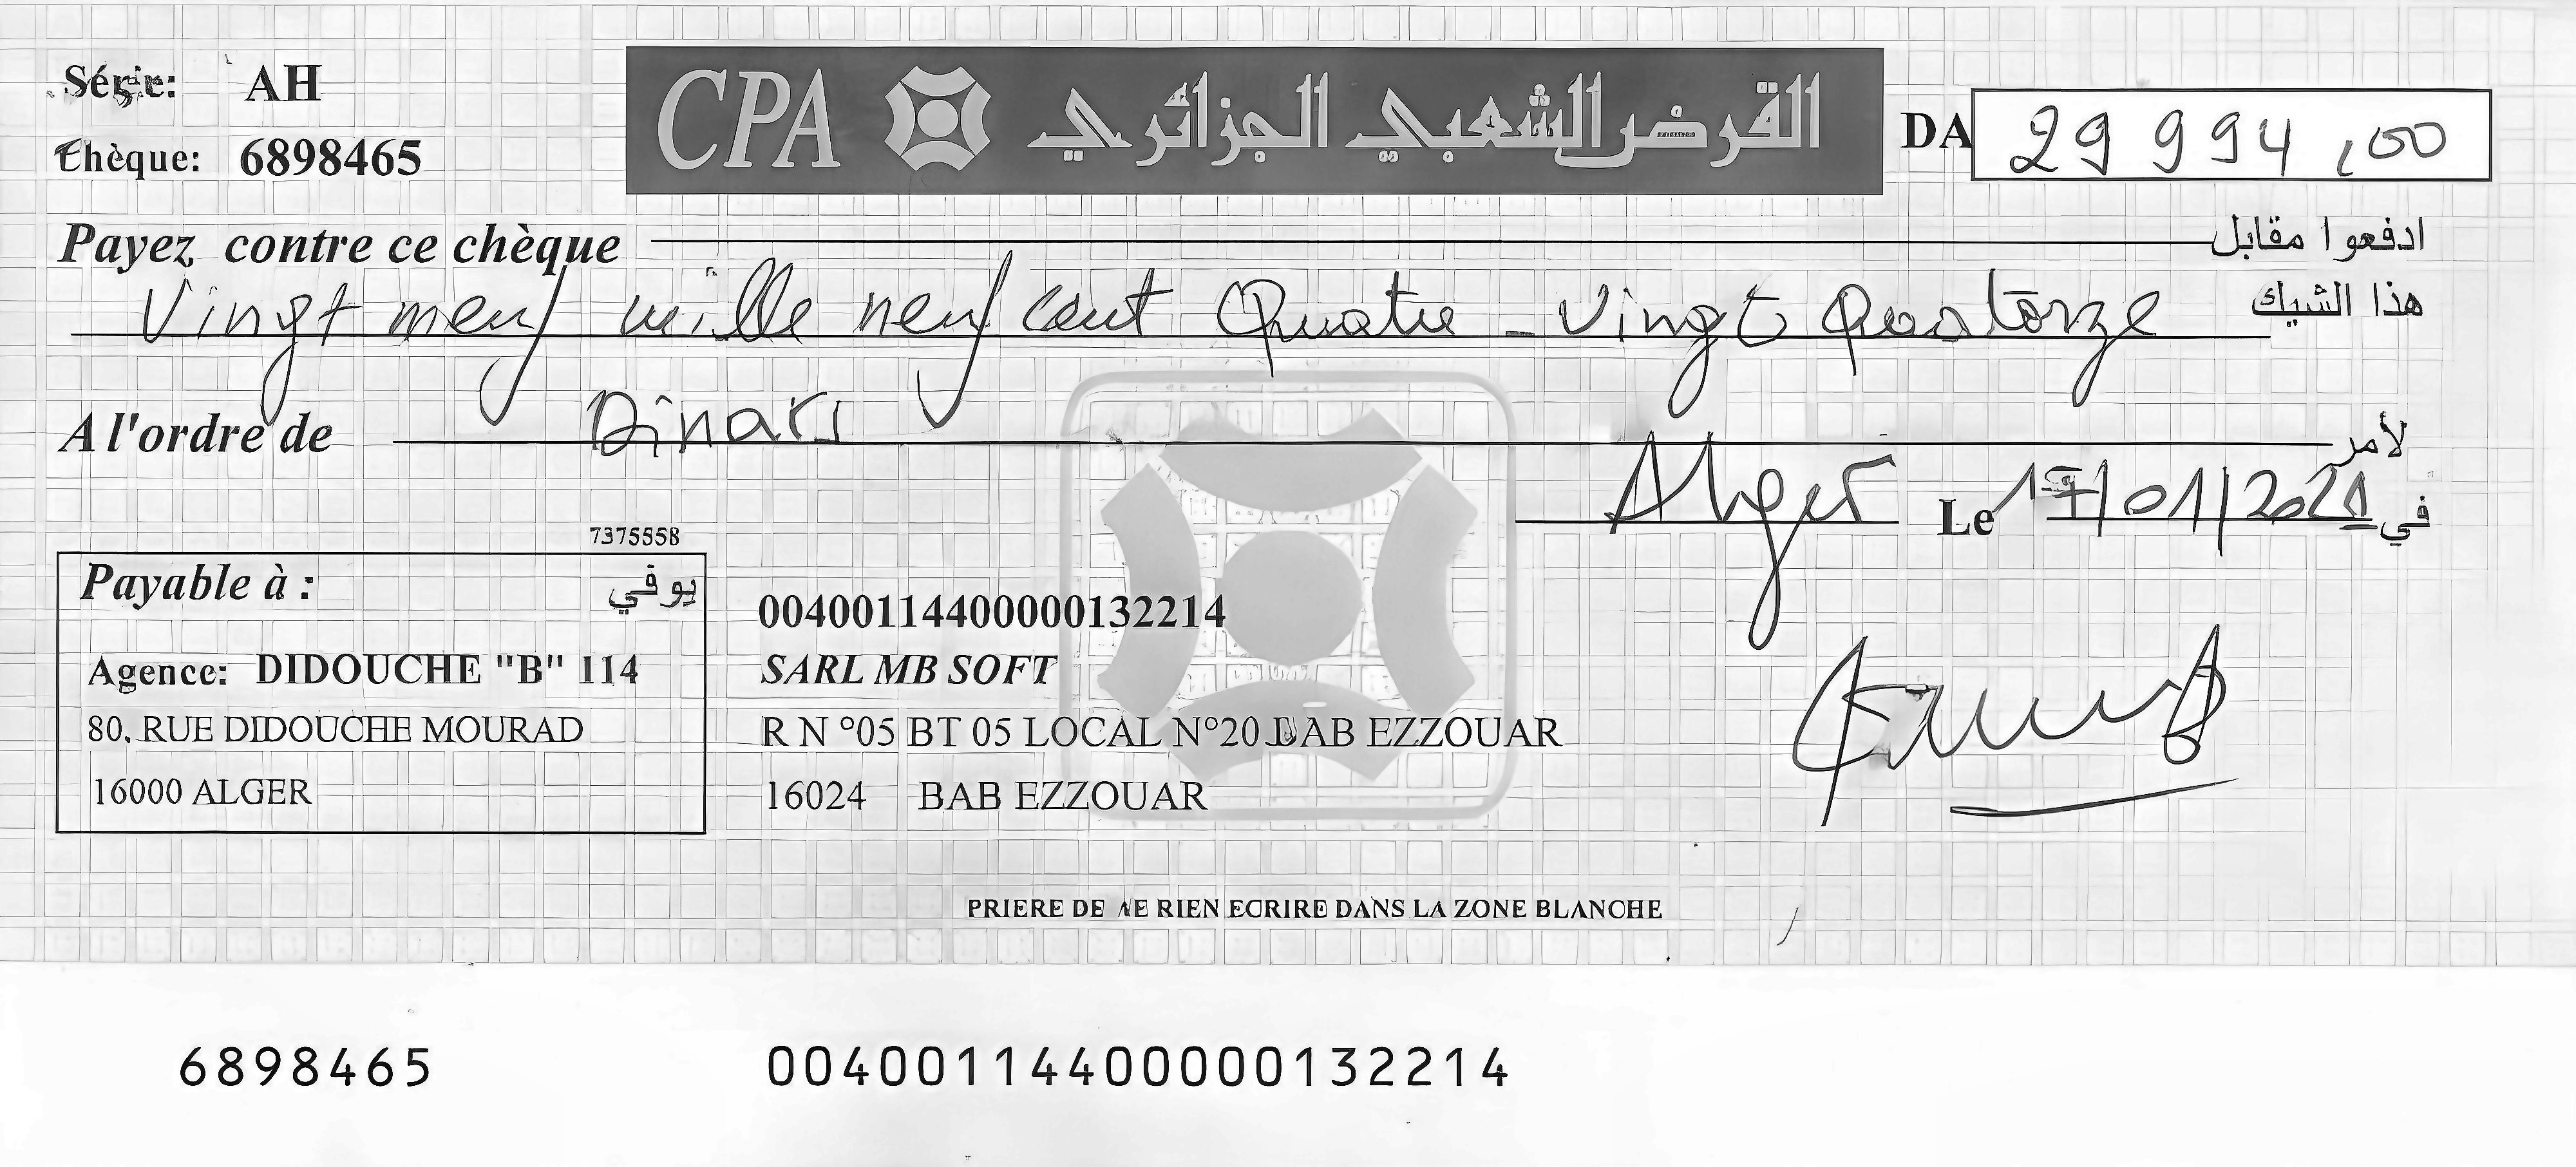 Série: AH
Chèque: 6898465
CPA القرض الشعبي الجزائري
DA 29 994,00
Payez contre ce chèque ادفعوا مقابل
Vingt neuf mille neuf cent Quatre-Vingt Quatorze هذا الشيك
A l'ordre de Dinars لأمر
Alger Le /01/ في
7375558
Payable à : يوفي
Agence: DIDOUCHE "B" 114
80, RUE DIDOUCHE MOURAD
16000 ALGER
00400114400000132214
SARL MB SOFT
R N °05 BT 05 LOCAL N°20 BAB EZZOUAR
16024 BAB EZZOUAR
PRIERE DE NE RIEN ECRIRE DANS LA ZONE BLANCHE
6898465 00400114400000132214